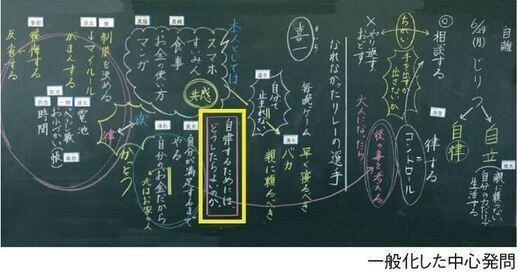 6/29(月) じりつ
自立
親に頼らない
自分の力だけで
生活する。
自律
律する
コントロール
◎ 相談する
ちがい
手を出すか
出さないか
×やり返す
おどす
大人になったら
後の事を考える
なれなかったリレーの選手
喜一
毎晩ゲーム
自分で
止まれない
早く寝るべき
バカ
親に頼るべき
自律するためには
どうしたらよいのか。
本人としては
スマホ
すいみん
食事
お金の使い方
マンガ
共感
自分が満足するまで
やる
自分のお金だから
元はお家の人
律
かっとう
制限を決める
↓マイルール
がまんする
後悔する
反省する
電池
ページ数
おこづかい帳
時間
一般化した中心発問